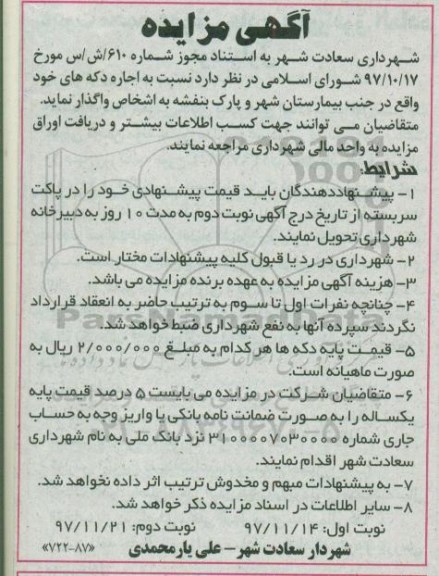 آگهی مزایده
شهرداری سعادت شهر به استناد مجوز شماره ۶۱۰/ش/س مورخ
۹۷/۱۰/۱۷ شورای اسلامی در نظر دارد نسبت به اجاره دکه های خود
واقع در جنب بیمارستان شهر و پارک بنفشه به اشخاص واگذار نماید.
متقاضیان می توانند جهت کسب اطلاعات بیشتر و دریافت اوراق
مزایده به واحد مالی شهرداری مراجعه نمایند.
شرایط:
۱- پیشنهاددهندگان باید قیمت پیشنهادی خود را در پاکت
سربسته از تاریخ درج آگهی نوبت دوم به مدت ۱۰ روز به دبیرخانه
شهرداری تحویل نمایند.
۲- شهرداری در رد یا قبول کلیه پیشنهادات مختار است.
۳- هزینه آگهی مزایده به عهده برنده مزایده می باشد.
۴- چنانچه نفرات اول تا سوم به ترتیب حاضر به انعقاد قرارداد
نگردند سپرده آنها به نفع شهرداری ضبط خواهد شد.
۵- قیمت پایه دکه ها هر کدام به مبلغ ۲/۰۰۰/۰۰۰ ریال به
صورت ماهیانه است.
۶- متقاضیان شرکت در مزایده می بایست ۵ درصد قیمت پایه
یکساله را به صورت ضمانت نامه بانکی یا واریز وجه به حساب
جاری شماره ۳۱۰۰۰۰۷۰۳۰۰۰۰ نزد بانک ملی به نام شهرداری
سعادت شهر اقدام نمایند.
۷- به پیشنهادات مبهم و مخدوش ترتیب اثر داده نخواهد شد.
۸- سایر اطلاعات در اسناد مزایده ذکر خواهد شد.
نوبت اول: ۹۷/۱۱/۱۴ نوبت دوم: ۹۷/۱۱/۲۱
شهردار سعادت شهر- علی یارمحمدی «۷۲۲-۸۷»